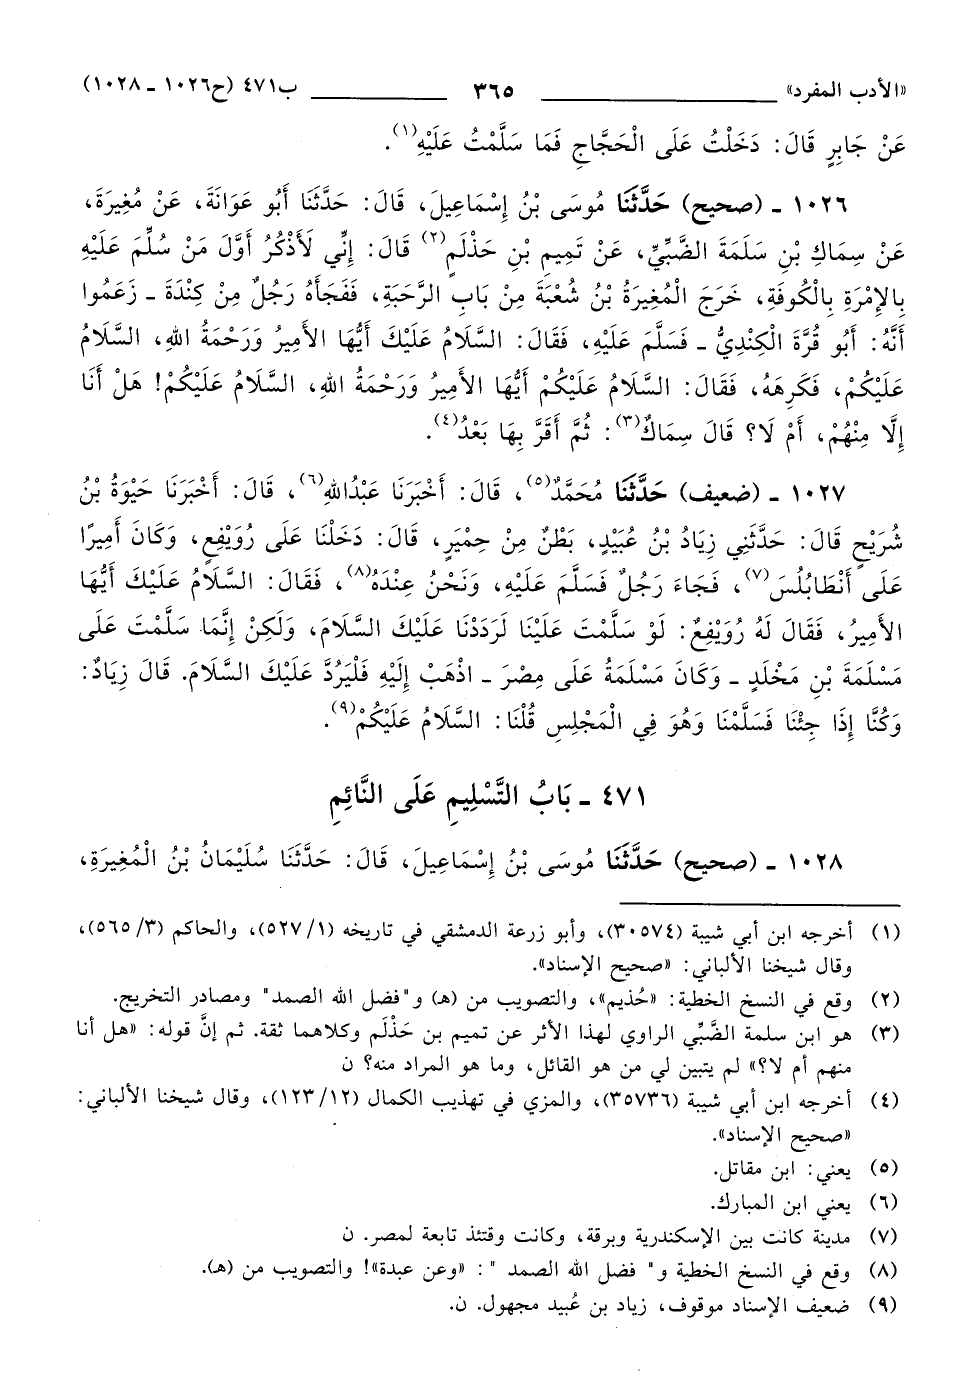 «الأدب المفرد» ٣٦٥ ب٤٧١ (ح١٠٢٦ ـ ١٠٢٨)
عَنْ جَابِرٍ قَالَ: دَخَلْتُ عَلَى الْحَجَّاجِ فَمَا سَلَّمْتُ عَلَيْهِ(١).
١٠٢٦ ـ (صحيح) حَدَّثَنَا مُوسَى بْنُ إِسْمَاعِيلَ، قَالَ: حَدَّثَنَا أَبُو عَوَانَةَ، عَنْ مُغِيرَةَ،
عَنْ سِمَاكِ بْنِ سَلَمَةَ الضَّبِّيِّ، عَنْ تَمِيمِ بْنِ حَذْلَمٍ(٢) قَالَ: إِنِّي لَأَذْكُرُ أَوَّلَ مَنْ سُلِّمَ عَلَيْهِ
بِالإِمْرَةِ بِالْكُوفَةِ، خَرَجَ الْمُغِيرَةُ بْنُ شُعْبَةَ مِنْ بَابِ الرَّحَبَةِ، فَفَجَأَهُ رَجُلٌ مِنْ كِنْدَةَ ـ زَعَمُوا
أَنَّهُ: أَبُو قُرَّةَ الْكِنْدِيُّ ـ فَسَلَّمَ عَلَيْهِ، فَقَالَ: السَّلَامُ عَلَيْكَ أَيُّهَا الأَمِيرُ وَرَحْمَةُ اللهِ، السَّلَامُ
عَلَيْكُمْ، فَكَرِهَهُ، فَقَالَ: السَّلَامُ عَلَيْكُمْ أَيُّهَا الأَمِيرُ وَرَحْمَةُ اللهِ، السَّلَامُ عَلَيْكُمْ! هَلْ أَنَا
إِلَّا مِنْهُمْ، أَمْ لَا؟ قَالَ سِمَاكٌ(٣): ثُمَّ أَقَرَّ بِهَا بَعْدُ(٤).
١٠٢٧ ـ (ضعيف) حَدَّثَنَا مُحَمَّدٌ(٥)، قَالَ: أَخْبَرَنَا عَبْدُاللهِ(٦)، قَالَ: أَخْبَرَنَا حَيْوَةُ بْنُ
شُرَيْحٍ قَالَ: حَدَّثَنِي زِيَادُ بْنُ عُبَيْدٍ، بَطْنٌ مِنْ حِمْيَرٍ، قَالَ: دَخَلْنَا عَلَى رُوَيْفِعٍ، وَكَانَ أَمِيرًا
عَلَى أَنْطَابُلُسَ(٧)، فَجَاءَ رَجُلٌ فَسَلَّمَ عَلَيْهِ، وَنَحْنُ عِنْدَهُ(٨)، فَقَالَ: السَّلَامُ عَلَيْكَ أَيُّهَا
الأَمِيرُ، فَقَالَ لَهُ رُوَيْفِعٌ: لَوْ سَلَّمْتَ عَلَيْنَا لَرَدَدْنَا عَلَيْكَ السَّلَامَ، وَلَكِنْ إِنَّمَا سَلَّمْتَ عَلَى
مَسْلَمَةَ بْنِ مَخْلَدٍ ـ وَكَانَ مَسْلَمَةُ عَلَى مِصْرَ ـ اذْهَبْ إِلَيْهِ فَلْيَرُدَّ عَلَيْكَ السَّلَامَ. قَالَ زِيَادٌ:
وَكُنَّا إِذَا جِئْنَا فَسَلَّمْنَا وَهُوَ فِي الْمَجْلِسِ قُلْنَا: السَّلَامُ عَلَيْكُمْ(٩).
٤٧١ ـ بَابُ التَّسْلِيمِ عَلَى النَّائِمِ
١٠٢٨ ـ (صحيح) حَدَّثَنَا مُوسَى بْنُ إِسْمَاعِيلَ، قَالَ: حَدَّثَنَا سُلَيْمَانُ بْنُ الْمُغِيرَةِ،
(١) أخرجه ابن أبي شيبة (٣٠٥٧٤)، وأبو زرعة الدمشقي في تاريخه (٥٢٧/١)، والحاكم (٥٦٥/٣)،
وقال شيخنا الألباني: «صحيح الإسناد».
(٢) وقع في النسخ الخطية: «حُذيم»، والتصويب من (هـ) و"فضل الله الصمد" ومصادر التخريج.
(٣) هو ابن سلمة الضَّبِّي الراوي لهذا الأثر عن تميم بن حَذْلَم وكلاهما ثقة. ثم إنَّ قوله: «هل أنا
منهم أم لا؟» لم يتبين لي من هو القائل، وما هو المراد منه؟ ن
(٤) أخرجه ابن أبي شيبة (٣٥٧٣٦)، والمزي في تهذيب الكمال (١٢٣/١٢)، وقال شيخنا الألباني:
«صحيح الإسناد».
(٥) يعني: ابن مقاتل.
(٦) يعني ابن المبارك.
(٧) مدينة كانت بين الإسكندرية وبرقة، وكانت وقتئذ تابعة لمصر. ن
(٨) وقع في النسخ الخطية و" فضل الله الصمد ": «وعن عبدة»! والتصويب من (هـ).
(٩) ضعيف الإسناد موقوف، زياد بن عُبيد مجهول. ن.